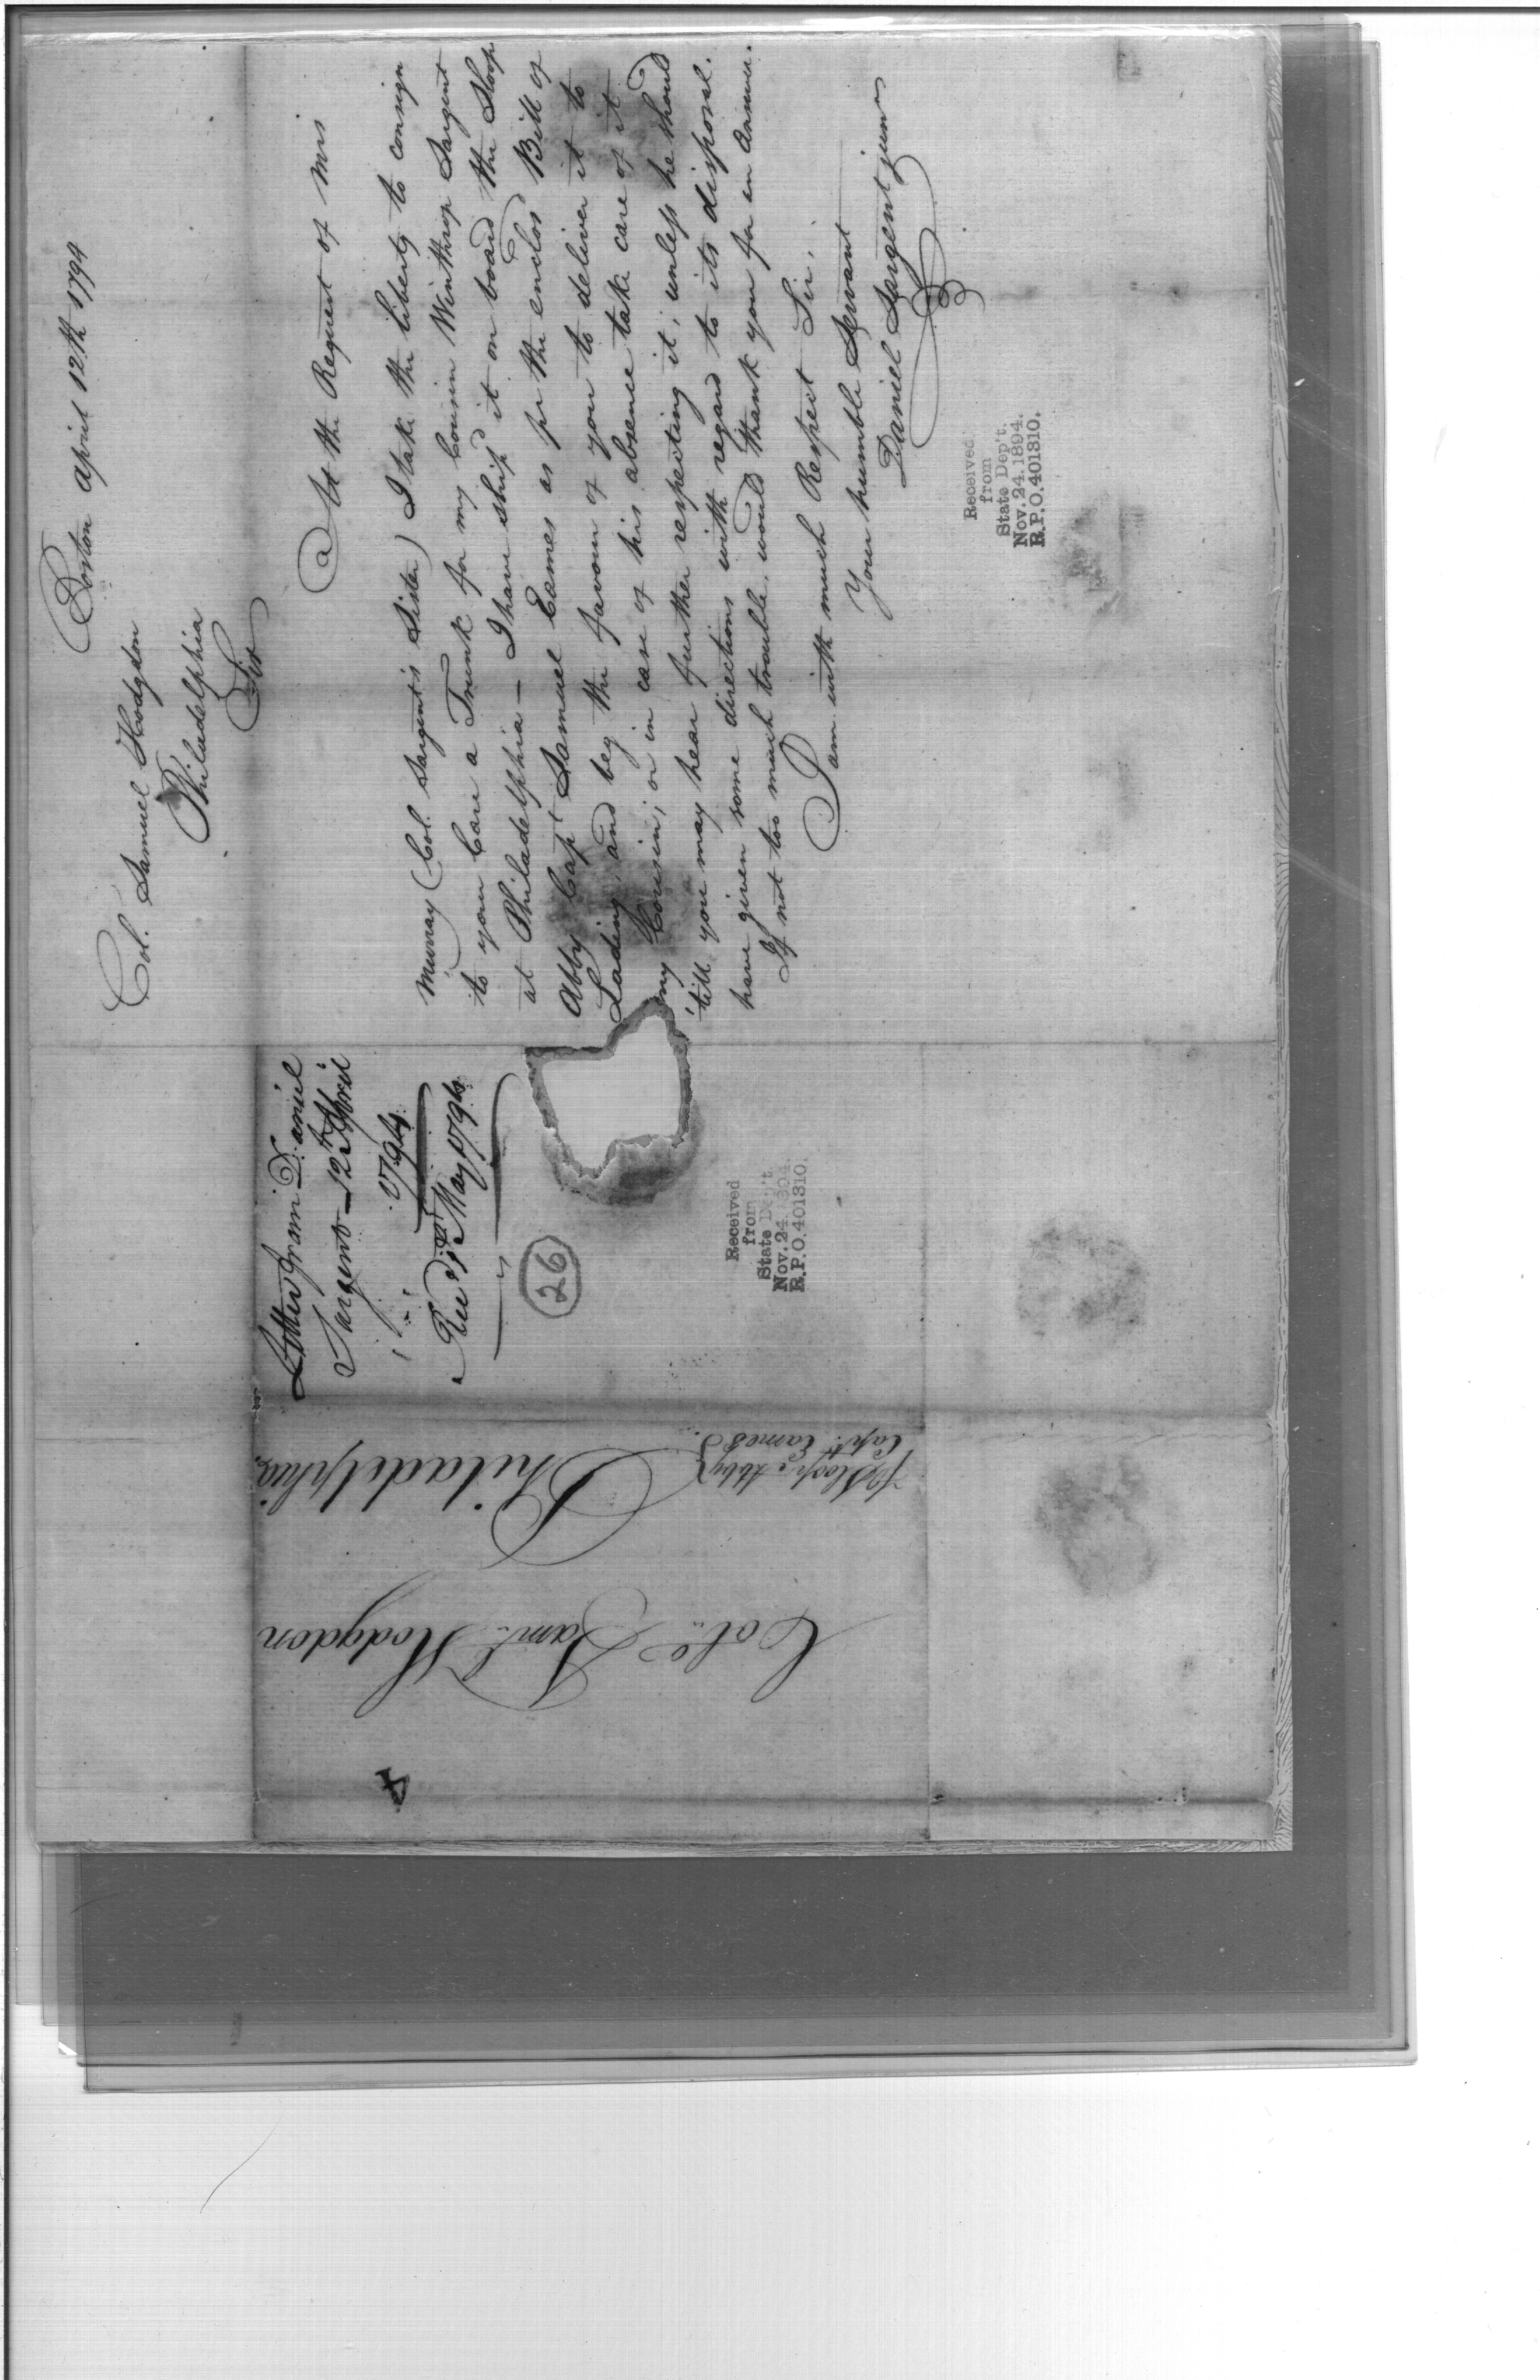 Boston april 12th 1794
Col. Samuel Hodgdon
Philadelphia
Sir
At the Request of Mrs
Murray (Col. Sargent's Sister) I take the liberty to consign
to your Care a Trunk for my Cousin Winthrop Sargent
at Philadelphia — I have ship'd it on board the Sloop
Abby Capt Samuel Eames as pr the enclos'd Bill of
Lading, and beg the favour of you to deliver it to
my Cousin; or in case of his absence take care of it
'till you may hear further respecting it, unless he should
have given some directions with regard to its disposal.
If not too much trouble, would thank you for an answer.
I am with much Respect Sir,
Your humble Servant
Daniel Sargent junr
Received
from
State Dep't.
Nov. 24. 1894.
R.P.O. 401310.
Letter from Daniel
Sargent 12th April
1794
Rec'd May 1794
26
Received
from
State Dep't.
Nov. 24. 1894.
R.P.O. 401310.
Colo. Saml. Hodgdon
Philadelphia.
Sloop Abby
Capt. Eames